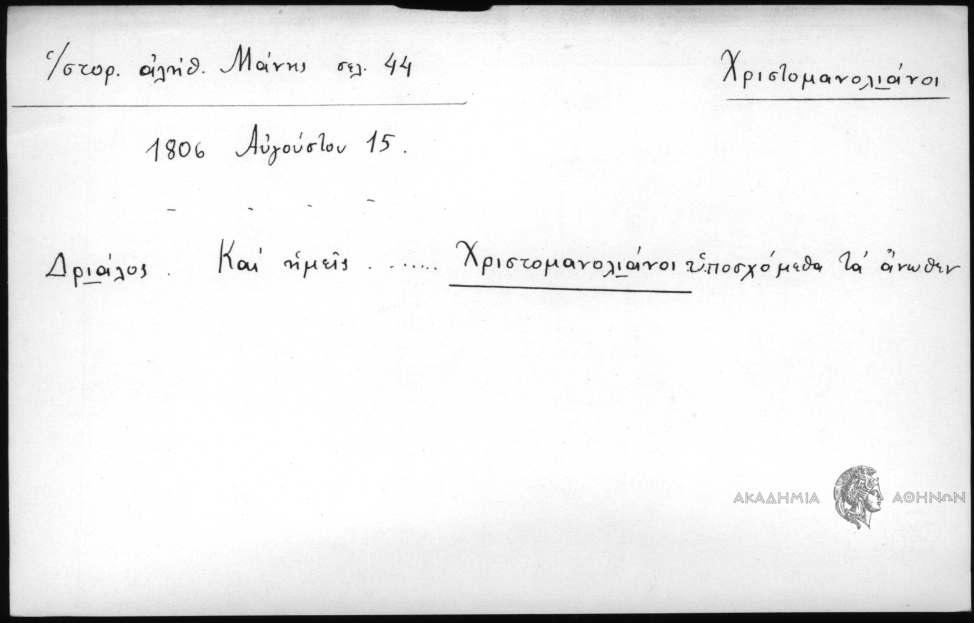 Ἱστορ. ἀλήθ. Μάνης σελ. 44
Χριστομανολιάνοι
1806 Αὐγούστου 15.
Δριάλος. Καί ἡμεῖς ....... Χριστομανολιάνοι ὑποσχόμεθα τά ἄνωθεν
ΑΚΑΔΗΜΙΑ ΑΘΗΝΩΝ